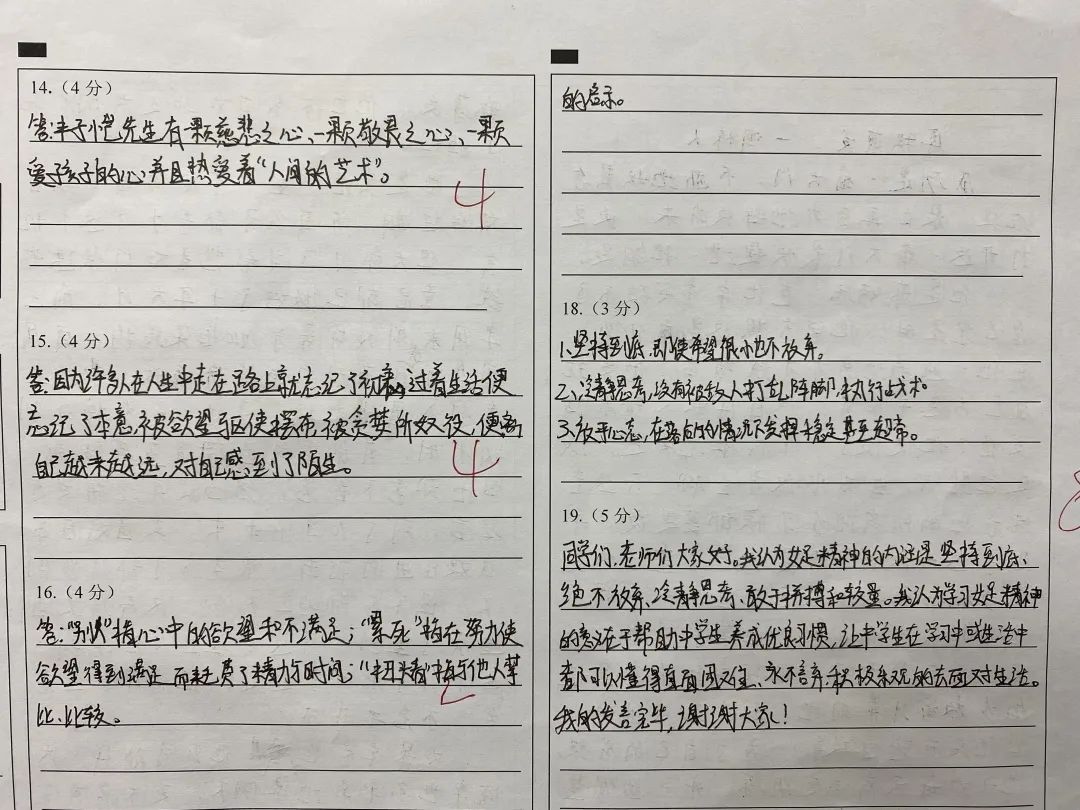 14.（4 分）
答:丰子恺先生有一颗慈悲之心、一颗敬畏之心、一颗
爱孩子的心,并且热爱着“人间的艺术”。
4
15.（4 分）
答:因为许多人在人生中走在路上就忘记了初衷,过着生活便
忘记了本意,被欲望驱使摆布,被贪婪所奴役,便离
自己越来越远,对自己感到了陌生。
4
16.（4 分）
答:“别快”指心中的欲望和不满足;“累死”指在努力使
欲望得到满足而耗费了精力与时间;“扭头看”指与他人攀
比、比较。
2
的启示。
18.（3 分）
1、坚持到底,即使希望很小也不放弃。
2、冷静思考,没有被敌人打乱阵脚,执行战术。
3、放平心态,在落后的情况下发挥稳定甚至超常。
19.（5 分）
同学们、老师们大家好。我认为女足精神的内涵是坚持到底、
绝不放弃、冷静思考、敢于拼搏和较量。我认为学习女足精神
的意义在于帮助中学生养成优良习惯,让中学生在学习中或生活中
都可以懂得直面困难、永不言弃,积极乐观的去面对生活。
我的发言完毕,谢谢大家!
8